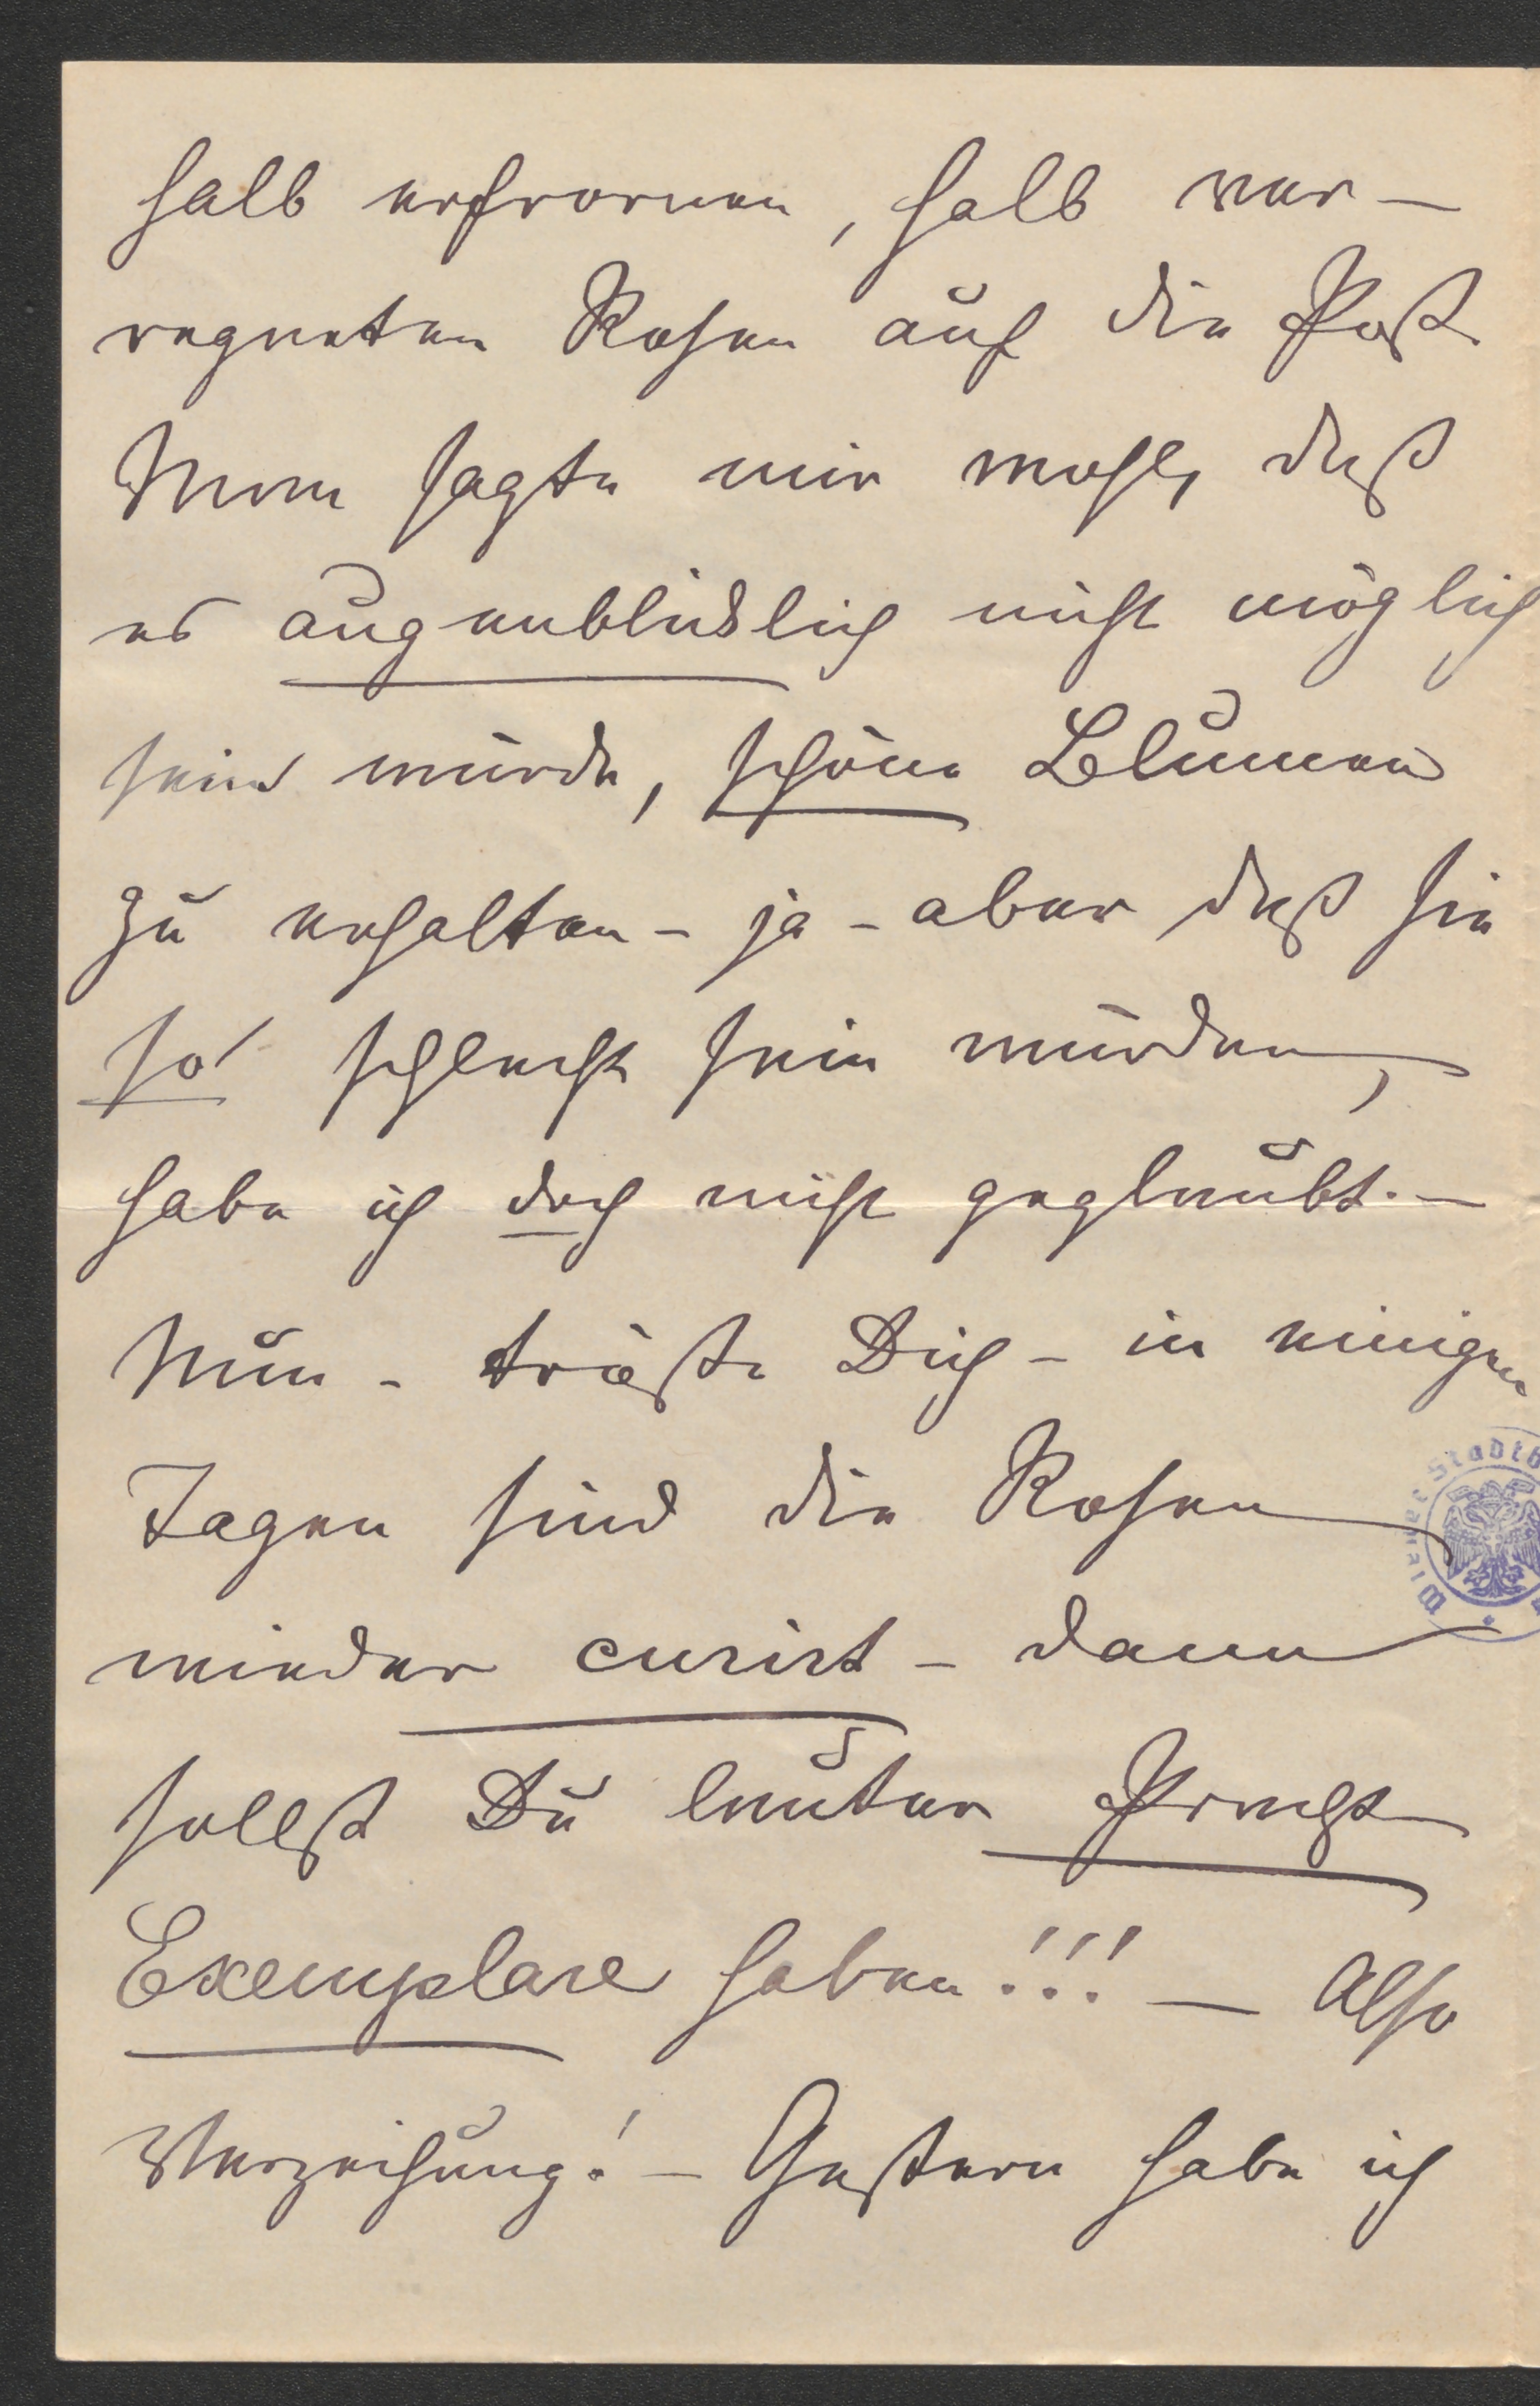 halb erfrornen, halb ver-
regneten Rosen auf die Post.
Man sagte mir wohl, daß
es augenblicklich nicht möglich
sein würde, schöne Blumen
zu erhalten - ja - aber daß sie
so schlecht sein würden,
habe ich doch nicht geglaubt. -
Nun - tröste Dich - in einigen
Tagen sind die Rosen
wieder curirt - dann
sollst Du lauter Pracht
Exemplare haben!!! - Also
Verzeihung! - Gestern habe ich
Wiener Stadtb